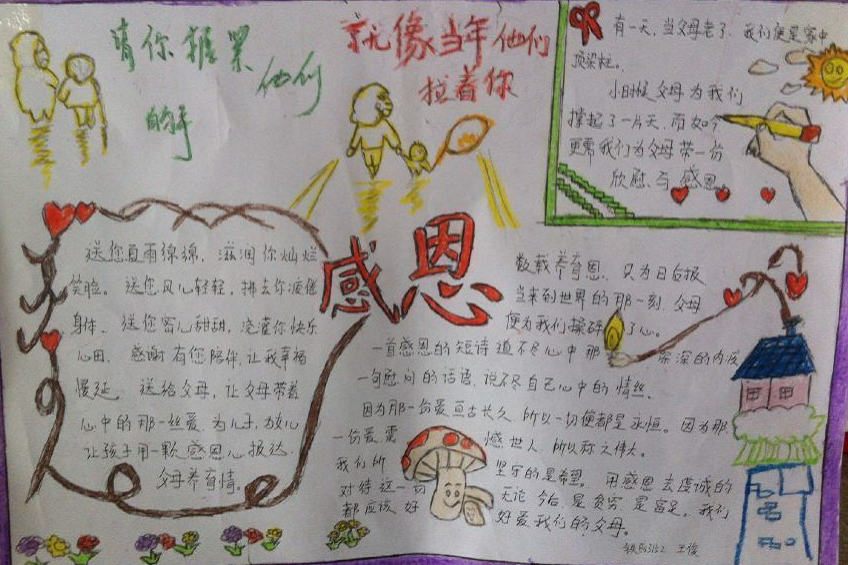 请你握紧
他们
的手
就像当年他们
拉着你
有一天,当父母老了,我们便是家中
顶梁柱。
小时候父母为我们
撑起了一片天,而如今
更需我们为父母带一份
欣慰与感恩。
感恩
送您夏雨绵绵,滋润你灿烂
笑脸。送您风儿轻轻,拂去你疲倦
身体。送您窝心甜甜,浇灌你快乐
心田。感谢有您陪伴,让我幸福
慢延。送给父母,让父母带着
心中的那一丝爱,为儿子,放心
让孩子用一颗感恩心报达
父母养育情。
数载养育恩,只为日后报
当来到世界的那一刻,父母
便为我们操碎了心。
一首感恩的短诗道不尽心中那深深的内疚
一句慰问的话语,说不尽自己心中的情丝。
因为那一份爱亘古长久,所以一切便都是永恒。因为那
一份爱震憾世人,所以称之伟大。
我们所坚守的是希望。用感恩去虔诚的
对待这一切无论今后是贫穷是富足,我们
都应该好好爱我们的父母。
王俊